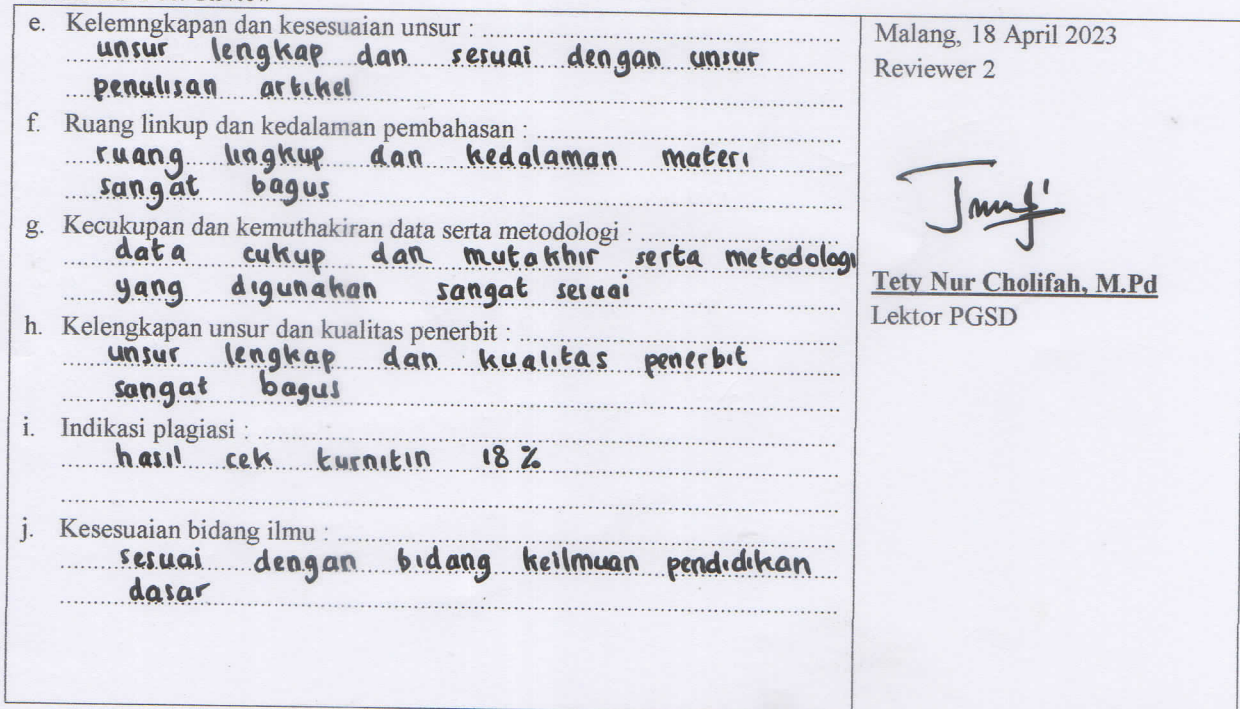 e. Kelemngkapan dan kesesuaian unsur :
unsur lengkap dan sesuai dengan unsur
penulisan artikel
f. Ruang linkup dan kedalaman pembahasan :
ruang lingkup dan kedalaman materi
sangat bagus
g. Kecukupan dan kemuthakiran data serta metodologi :
data cukup dan mutakhir serta metodologi
yang digunakan sangat sesuai
h. Kelengkapan unsur dan kualitas penerbit :
unsur lengkap dan kualitas penerbit
sangat bagus
i. Indikasi plagiasi :
hasil cek turnitin 18 %
j. Kesesuaian bidang ilmu :
sesuai dengan bidang keilmuan pendidikan
dasar
Malang, 18 April 2023
Reviewer 2
Tety Nur Cholifah, M.Pd
Lektor PGSD